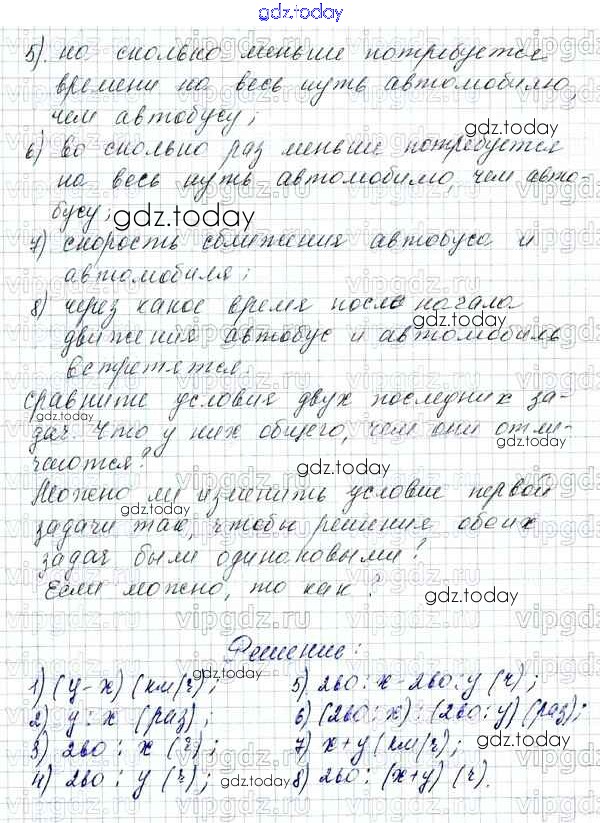 gdz.today
5) на сколько меньше потребуется
времени на весь путь автомобилю,
чем автобусу;
gdz.today
6) Во сколько раз меньше потребуется
на весь путь автомобилю, чем авто-
бусу;
gdz.today
7) скорость сближения автобуса и
автомобиля;
8) через какое время после начала
gdz.today
движения автобус и автомобиль
встретятся.
Сравните условия двух последних за-
gdz.today
дач. Что у них общего, чем они отли-
gdz.today
чаются?
gdz.today
Можно ли изменить условие первой
gdz.today
задачи так, чтобы решения обоих
задач были одинаковыми?
Если можно, то как?
gdz.today
Решение:
1) (y-x) (км/ч);
5) 260:x-260:y (ч);
gdz.today
2) y:x (раз);
6) (260:x):(260:y) (раз);
3) 260:x (ч);
7) x+y (км/ч);
gdz.today
4) 260:y (ч);
8) 260:(x+y) (ч).
gdz.today